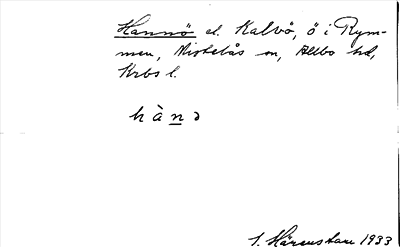 Hannö el. Kalvö, ö i Rym-
men, Mistelås sn, Allbo hd,
Krbs l.
hànə
S. Härenstam 1933